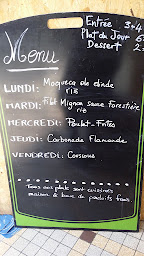 Entrée 3€
Plat du Jour
Dessert
Menu
LUNDI: Moqueca de dinde
riz
MARDI: Filet Mignon Sauce Forestière
riz
MERCREDI: Poulet-Frites
JEUDI: Carbonade Flamande
VENDREDI: Couscous
Tous nos plats sont cuisinés
maison à base de produits frais